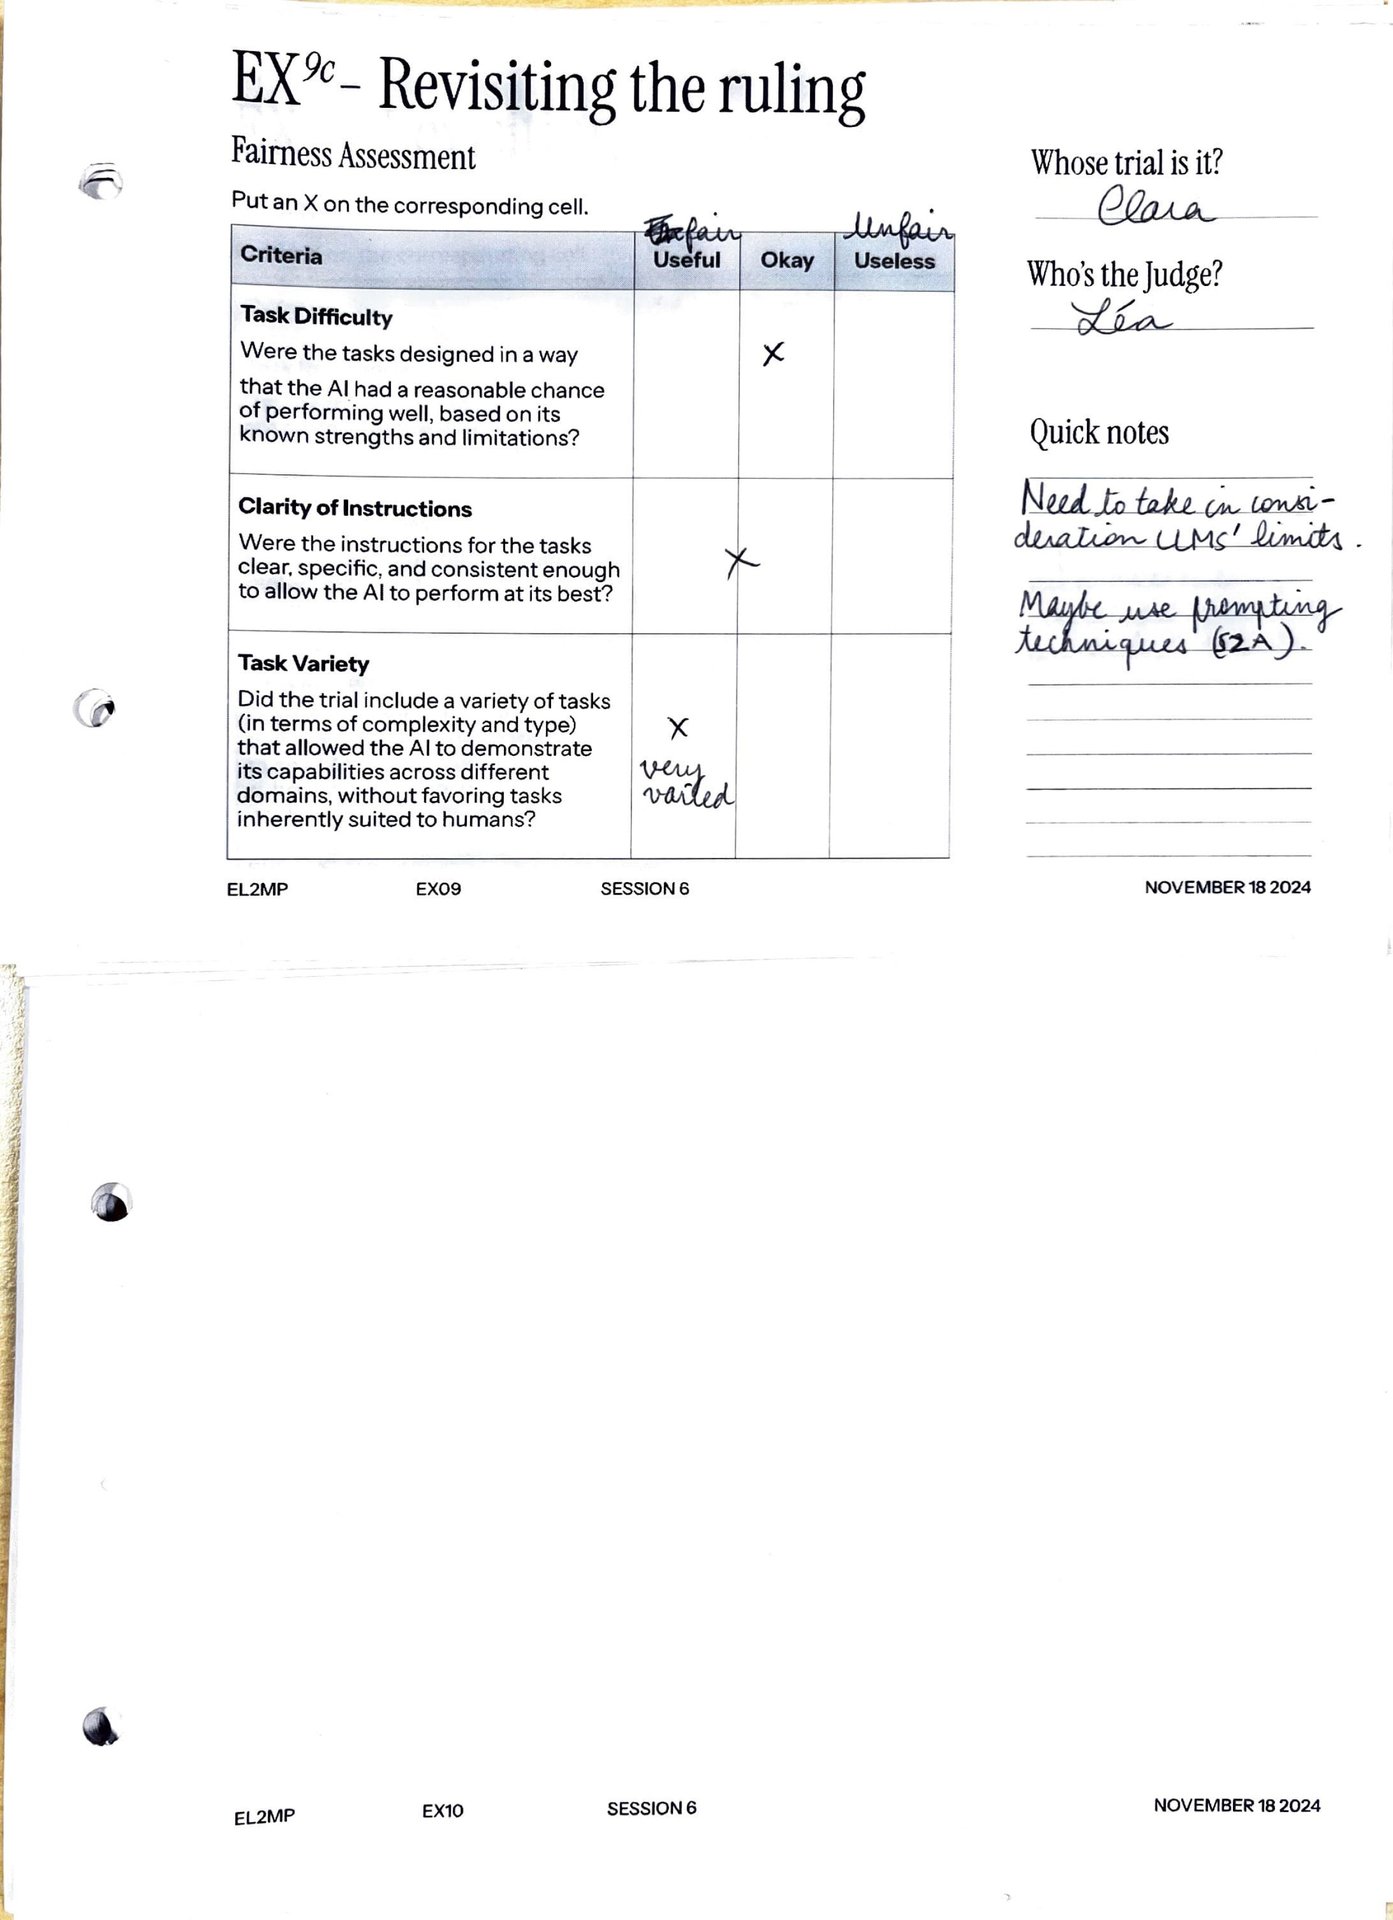 EX9c – Revisiting the ruling
Fairness Assessment
Put an X on the corresponding cell.
Whose trial is it?
Clara
Who's the Judge?
Léa
fair
Unfair
Criteria Useful Okay Useless
Task Difficulty
Were the tasks designed in a way
that the AI had a reasonable chance
of performing well, based on its
known strengths and limitations?
X
Clarity of Instructions
Were the instructions for the tasks
clear, specific, and consistent enough
to allow the AI to perform at its best?
X
Task Variety
Did the trial include a variety of tasks
(in terms of complexity and type)
that allowed the AI to demonstrate
its capabilities across different
domains, without favoring tasks
inherently suited to humans?
X
very
varied
Quick notes
Need to take in consi-
deration LLMs' limits.
Maybe use prompting
techniques (S2A).
EL2MP EX09 SESSION 6 NOVEMBER 18 2024
EL2MP EX10 SESSION 6 NOVEMBER 18 2024